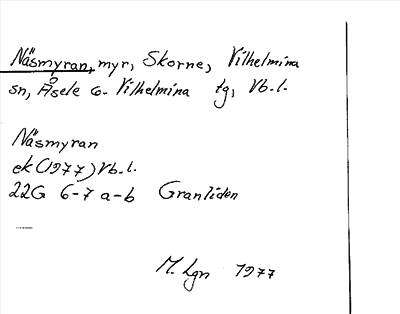 Näsmyran, myr, Skorne, Vilhelmina
sn, Åsele o. Vilhelmina tg, Vb.l.
Näsmyran
ek (1977) Vb.l.
22G 6-7 a-b Granliden
M. Lgn 1977